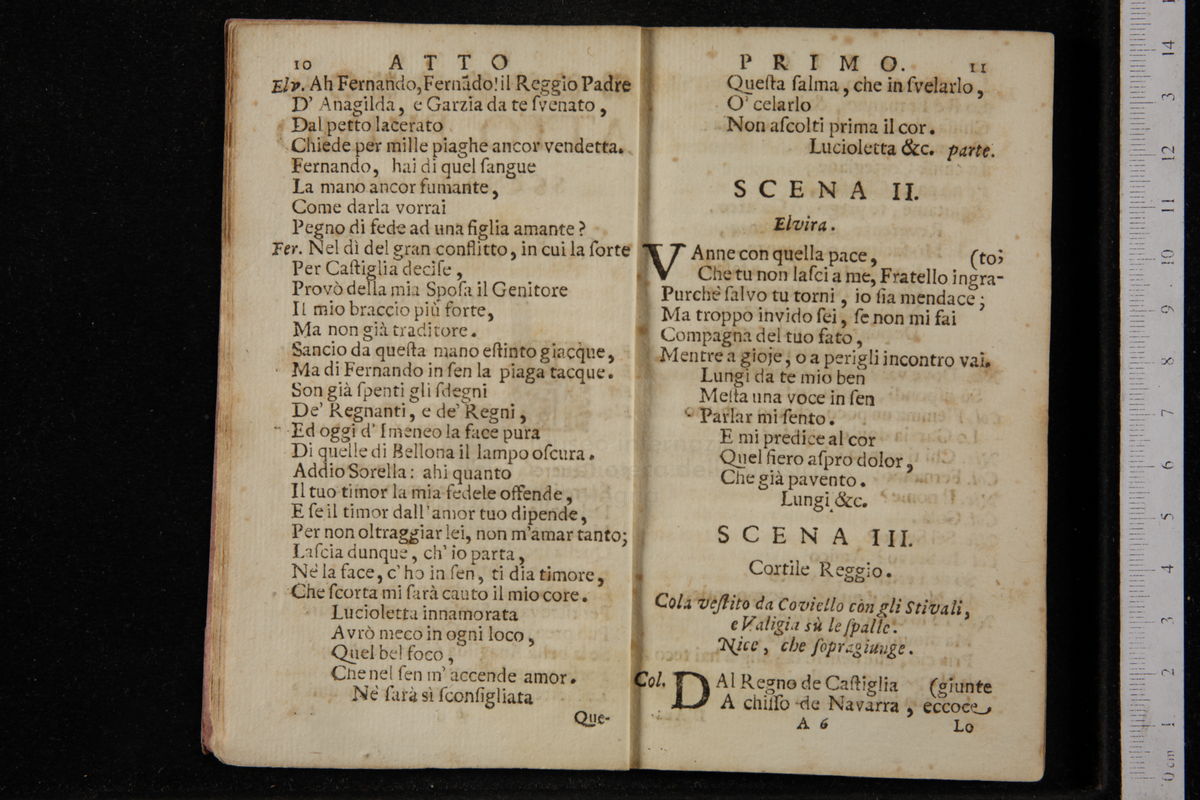 10 ATTO
Elv. Ah Fernando, Fernãdo! il Reggio Padre
D' Anagilda, e Garzia da te ſvenato,
Dal petto lacerato
Chiede per mille piaghe ancor vendetta.
Fernando, hai di quel ſangue
La mano ancor fumante,
Come darla vorrai
Pegno di fede ad una figlia amante?
Fer. Nel dì del gran conflitto, in cui la ſorte
Per Caſtiglia deciſe,
Provò della mia Spoſa il Genitore
Il mio braccio più forte,
Ma non già traditore.
Sancio da queſta mano eſtinto giacque,
Ma di Fernando in ſen la piaga tacque.
Son già ſpenti gli ſdegni
De' Regnanti, e de' Regni,
Ed oggi d' Imeneo la face pura
Di quelle di Bellona il lampo oſcura.
Addio Sorella: ahi quanto
Il tuo timor la mia fedele offende,
E ſe il timor dall'amor tuo dipende,
Per non oltraggiar lei, non m'amar tanto;
Laſcia dunque, ch' io parta,
Nè la face, c' ho in ſen, ti dia timore,
Che ſcorta mi ſarà cauto il mio core.
Lucioletta innamorata
Avrò meco in ogni loco,
Quel bel foco,
Che nel ſen m' accende amor.
Nè ſarà sì ſconſigliata
Que-
PRIMO. 11
Queſta ſalma, che in ſvelarlo,
O' celarlo
Non aſcolti prima il cor.
Lucioletta &c. parte.
SCENA II.
Elvira.
VAnne con quella pace, (to;
Che tu non laſci a me, Fratello ingra-
Purchè ſalvo tu torni, io ſia mendace;
Ma troppo invido ſei, ſe non mi fai
Compagna del tuo fato,
Mentre a gioje, o a perigli incontro vai.
Lungi da te mio ben
Meſta una voce in ſen
Parlar mi ſento.
E mi predice al cor
Quel fiero aſpro dolor,
Che già pavento.
Lungi &c.
SCENA III.
Cortile Reggio.
Cola veſtito da Coviello con gli Stivali,
e Valigia sù le ſpalle.
Nice, che ſopragiunge.
Col. DAl Regno de Caſtiglia (giunte
A chiſſo de Navarra, eccoce
A 6 Lo